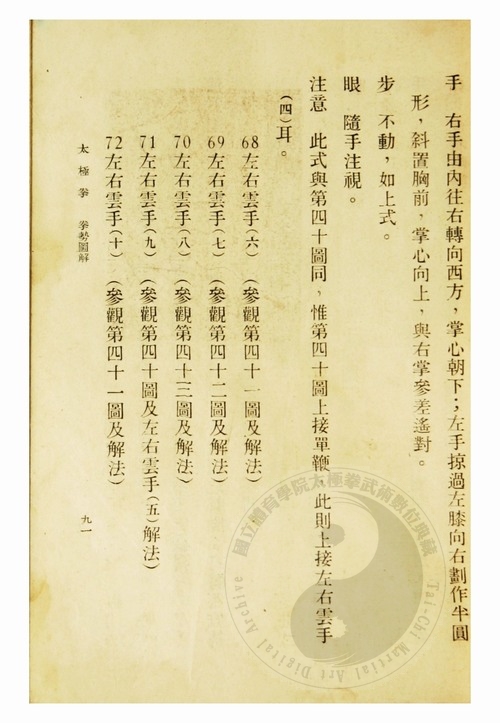 手　右手由內往右轉向西方，掌心朝下；左手掠過左膝向右劃作半圓
形，斜置胸前，掌心向上，與右掌參差遙對。
步　不動，如上式。
眼　隨手注視。
注意　此式與第四十圖同，惟第四十圖上接單鞭，此則上接左右雲手
（四）耳。
68左右雲手（六）　（參觀第四十一圖及解法）
69左右雲手（七）　（參觀第四十二圖及解法）
70左右雲手（八）　（參觀第四十三圖及解法）
71左右雲手（九）　（參觀第四十圖及左右雲手（五）解法）
72左右雲手（十）　（參觀第四十一圖及解法）
太極拳　拳勢圖解
九一
國立體育學院太極拳武術數位典藏
Tai-Chi Martial Art Digital Archive